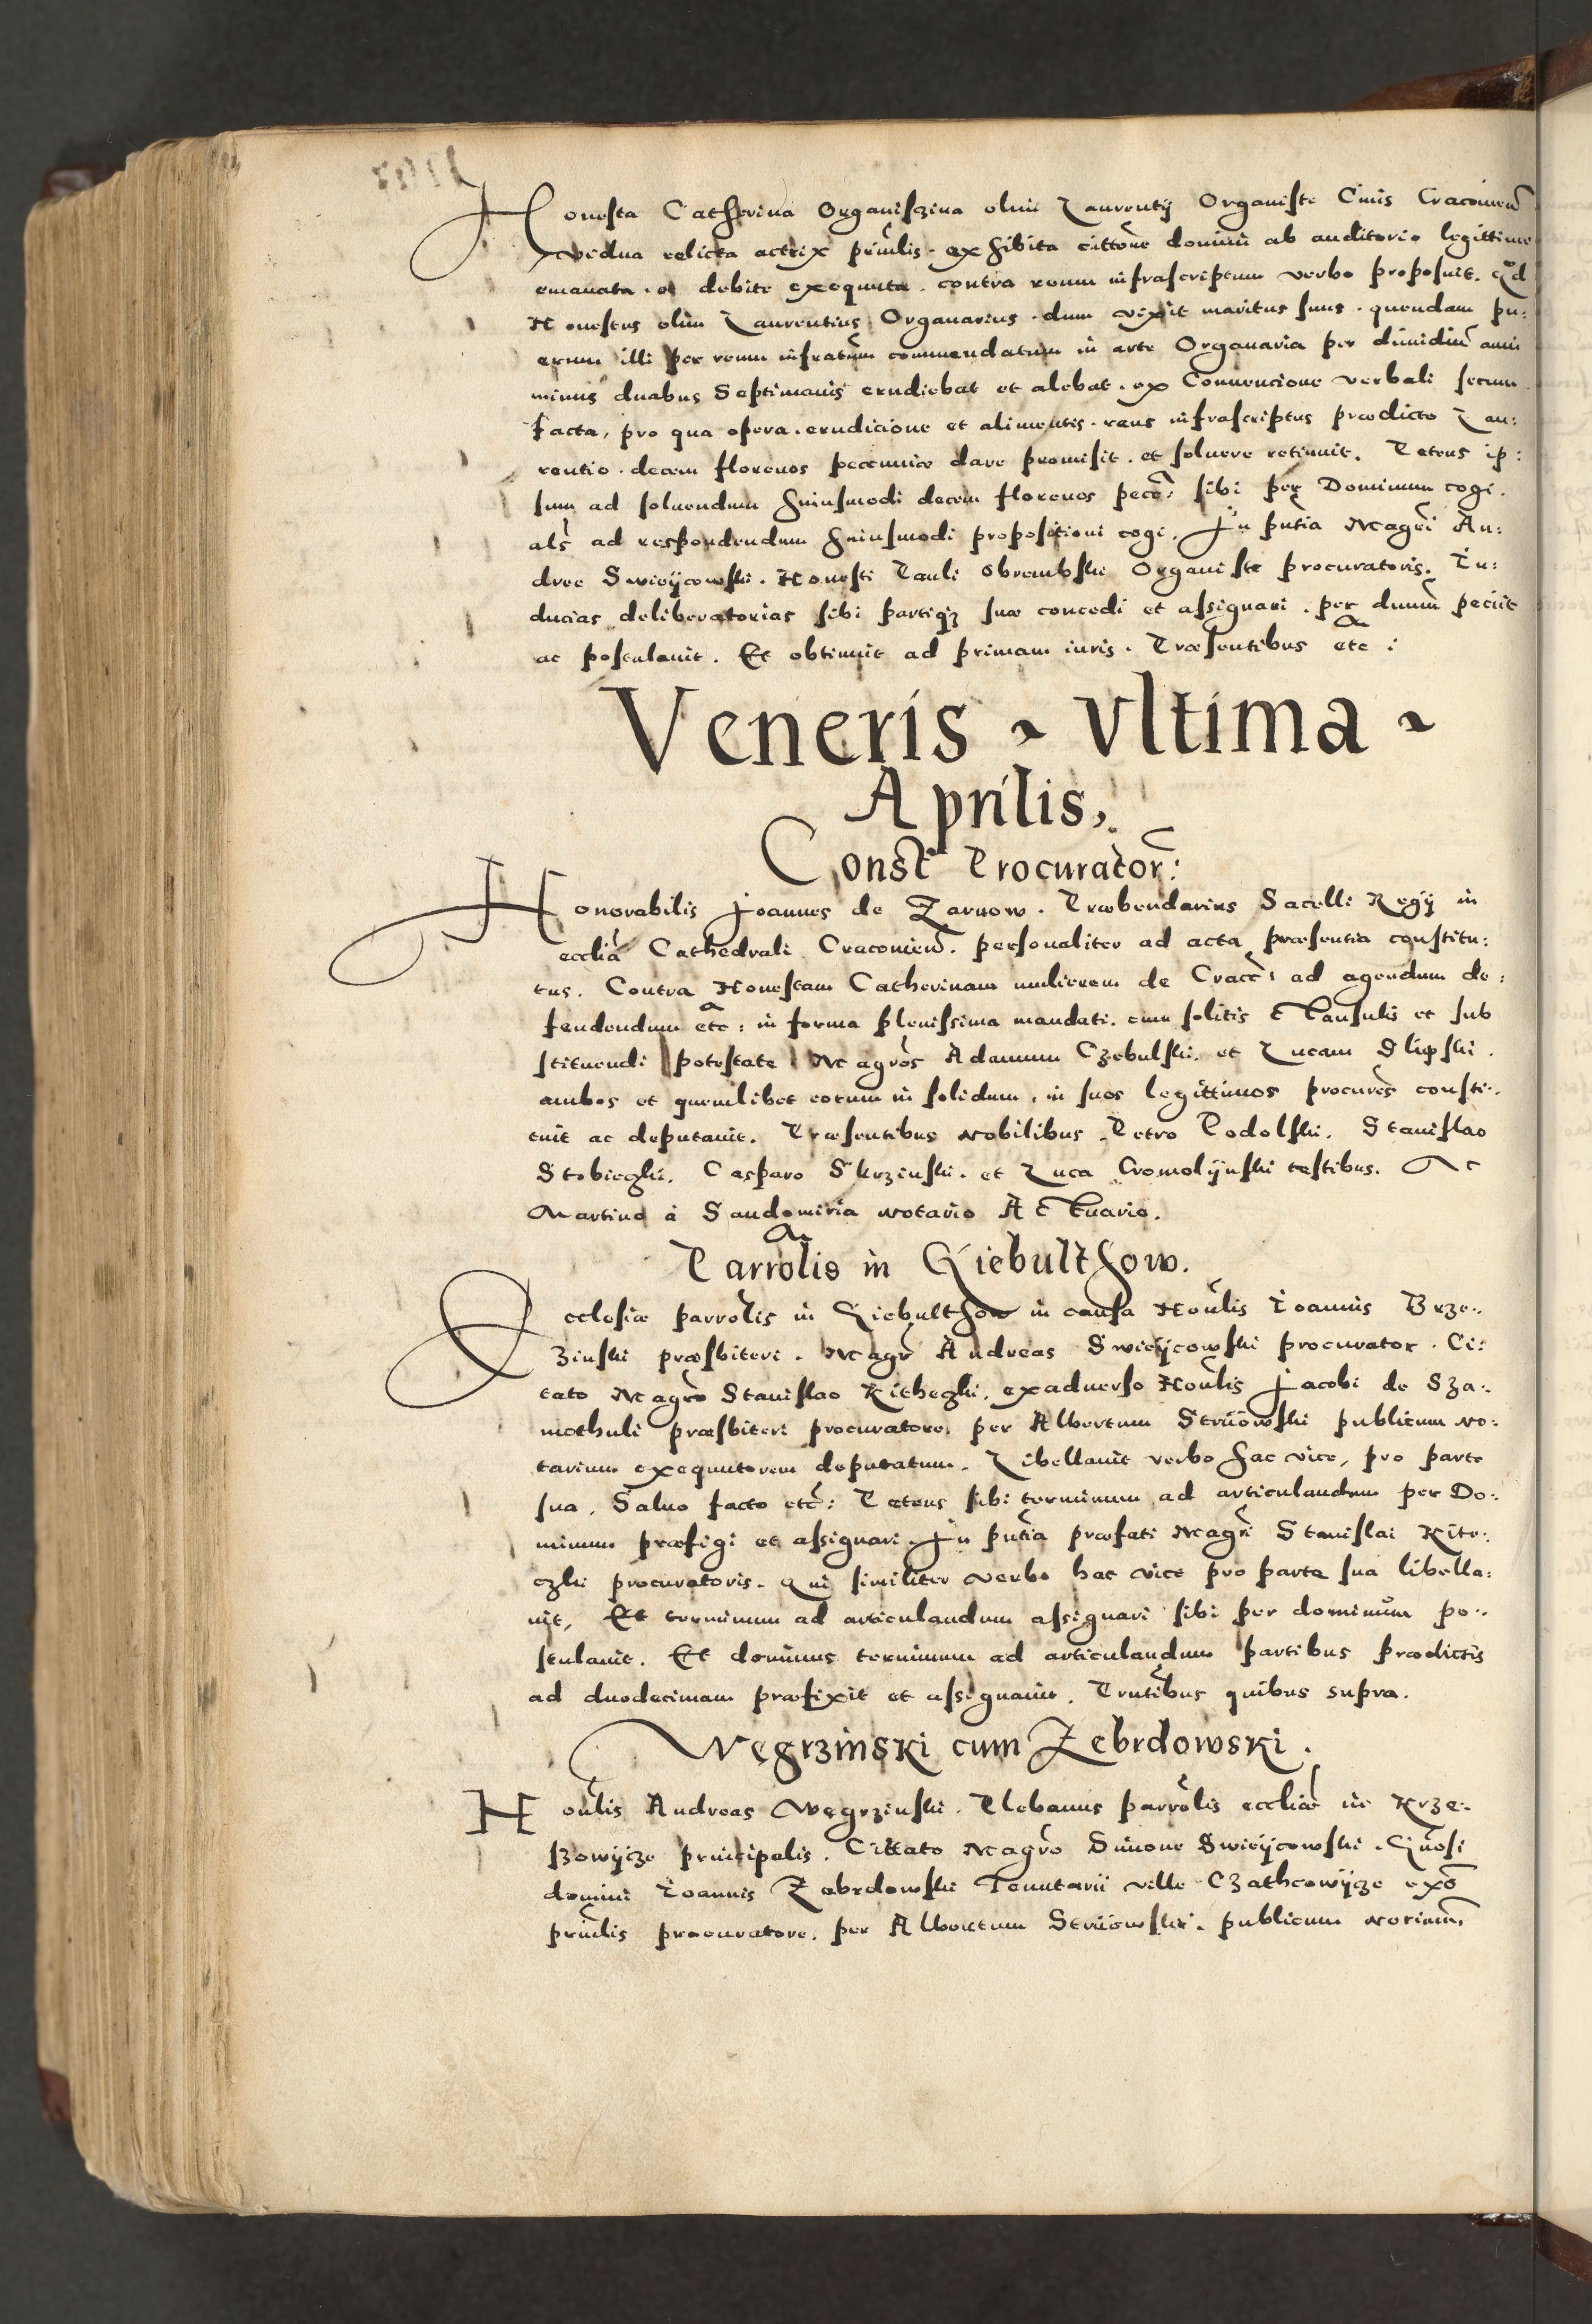 Honesta Catherina Organiszina olim Laurentÿ Organiste Ciuis Cracouien̄
vidua relicta actrix prin̄lis. exhibita citt̄one domini ab auditorio legittime
emanata. et debite exequuta. contra reum infrascriptum verbo proposuit. q̄d
Honestus olim Laurentius Organarius. dum vixit maritus suus. quendam pu:
erum illi per reum infrat̄um commendatum in arte Organaria per dimidiū anni
minus duabus Septimanis erudiebat et alebat. ex Conuencione verbali secum
facta, pro qua opera. erudicione et alimentis. reus infrascriptus prædicto Lau:
rentio. decem florenos pecuniæ dare promisit. et soluere retinuit. Petens ip:
sum ad soluendum huiusmodi decem florenos pecc̄: sibi per Dominum cogi.
als̄ ad respondendum huiusmodi propositioni cogi. In pn̄tia Magr̄i An:
dree Swieÿcowski. Honesti Pauli Obrembski Organiste procuratoris. In:
ducias deliberatorias sibi partiq; suæ concedi et assignari. per dnum̄ peciit
ac postulauit. Et obtinuit ad primam iuris. Præsentibus etc:
Veneris ~ vltima ~
Aprilis,
Const̄ Procurator̄:
Honorabilis Joannes de Zarnow. Præbendarius Sacelli Regÿ in
eccliā Cathedrali Cracouien̄. personaliter ad acta præsentia constitu:
tus. Contra Honestam Catherinam mulierem de Cracc̄: ad agendum de:
fendendum etc̄: in forma plenissima mandati. cum solitis Clausulis et sub
stituendi potestate Magr̄os Adamum Czebulski. et Lucam Slipski.
ambos et quemlibet eorum in solidum, in suos legittimos procures̄ consti:
tuit ac deputauit. Præsentibus nobilibus Petro Podolski. Stanislao
Stobieghi. Casparo Skrzinski. et Luca Cromolÿnski testibus. Ac
Martino à Sandomiria notario Actuario.
Parrol̄is in Giebulthow.
Ecclesiæ parrol̄is in Giebulthow in causa Hon̄lis Ioannis Brze:
zinski præsbiteri. Magr̄ Andreas Swieÿcowski procurator. Ci:
tato Magr̄o Stanislao Kitheghi. exaduerso Hon̄lis Jacobi de Sza:
mothuli præsbiteri procuratore, per Albertum Striiowski publicum no:
tarium exequutorem deputatum. Libellauit verbo hac vice, pro parte
sua, Saluo facto etc̄: Petens sibi terminum ad articulandum per Do:
minum præfigi et assignari. In pn̄tia præfati Magr̄i Stanislai Kite:
czki procuratoris. qui similiter verbo hac vice pro parte sua libella:
uit, Et terminum ad articulandum assignari sibi per dominum po:
stulauit. Et dominus terminum ad articulandum partibus prædictis
ad duodecimam præfixit et assignauit. Prn̄tibus quibus supra.
Węgrzinski cum Zebrdowski.
Hon̄lis Andreas Węgrzinski. Plebanus parrol̄is eccliæ in Krze:
szowÿcze principalis. Cittato Magr̄o Simone Swieÿcowski. Gn̄osi
domini Ioannis Zebrdowski Tenutarii ville Czathcowÿcze exō
prin̄lis procuratore. per Albertum Striiowski. publicum notarium